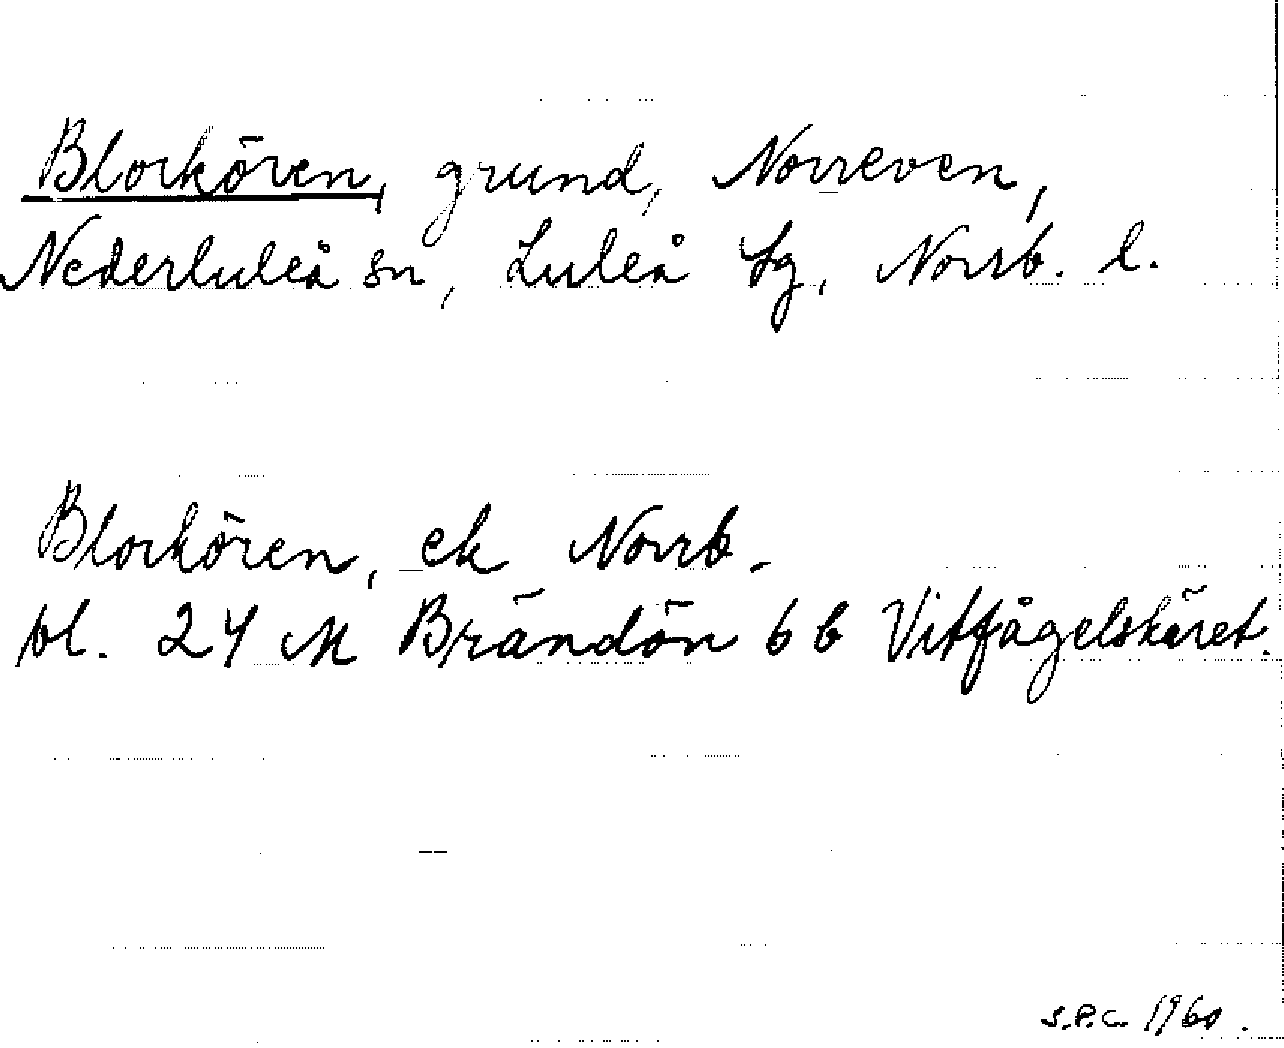 Blorkören, grund, Norreven,
Nederluleå sn, Luleå tg, Norrb. l.
Blorkören, ek Norrb.
bl. 24 M Brändön 6 b Vitfågelskäret.
S.P.C. 1960.